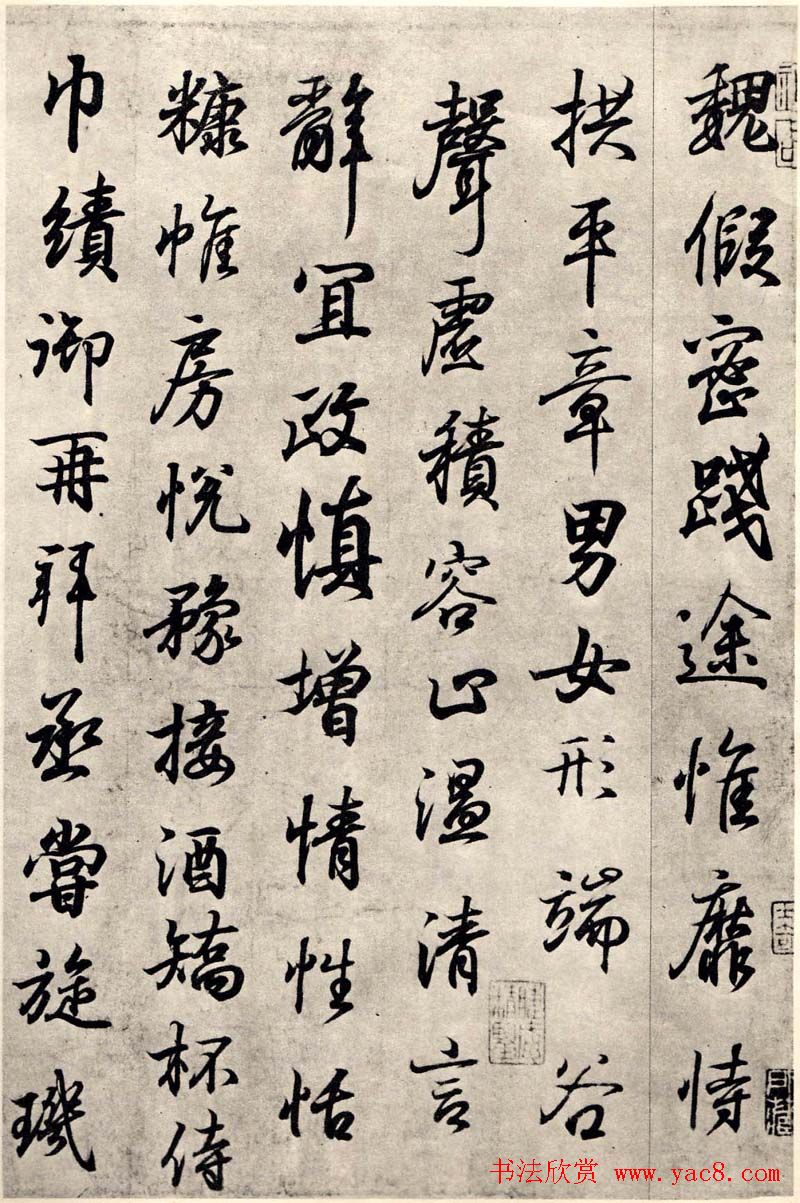 魏假密踐途惟靡恃
拱平章男女形端谷
聲虛積容止溫清言
辭宜政慎增情性恬
糠帷房悅豫接酒矯杯侍
巾績御再拜烝嘗旋璣
书法欣赏 www.yac8.com